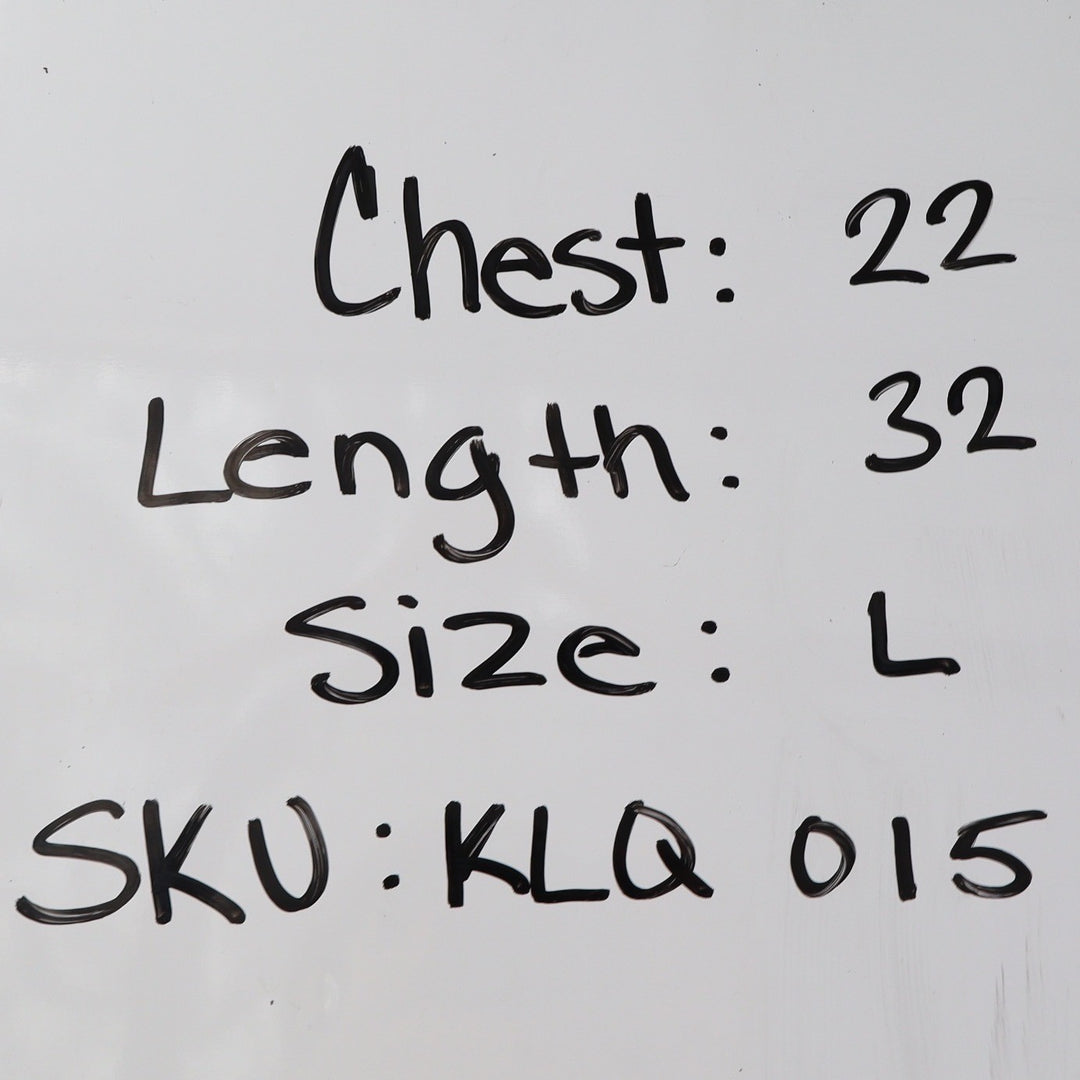 Chest: 22
Length: 32
Size: L
SKU: KLQ 015